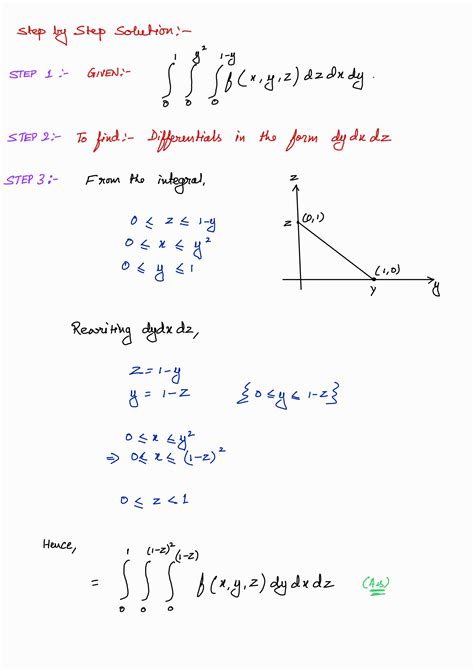 Step by Step Solution:-
STEP 1 :- GIVEN:- ∫₀¹ ∫₀^{y²} ∫₀^{1-y} f(x, y, z) dz dx dy.
STEP 2:- To find:- Differentials in the form dy dx dz
STEP 3:- From the integral,
z
0 ≤ z ≤ 1-y
z (0,1)
0 ≤ x ≤ y²
0 ≤ y ≤ 1
(1,0)
y y
Rewriting dydx dz,
z = 1-y
y = 1-z {0 ≤ y ≤ 1-z}
0 ≤ x ≤ y²
⇒ 0 ≤ x ≤ (1-z)²
0 ≤ z < 1
Hence,
= ∫₀¹ ∫₀^{(1-z)²} ∫₀^{(1-z)} f(x, y, z) dy dx dz (Ans)